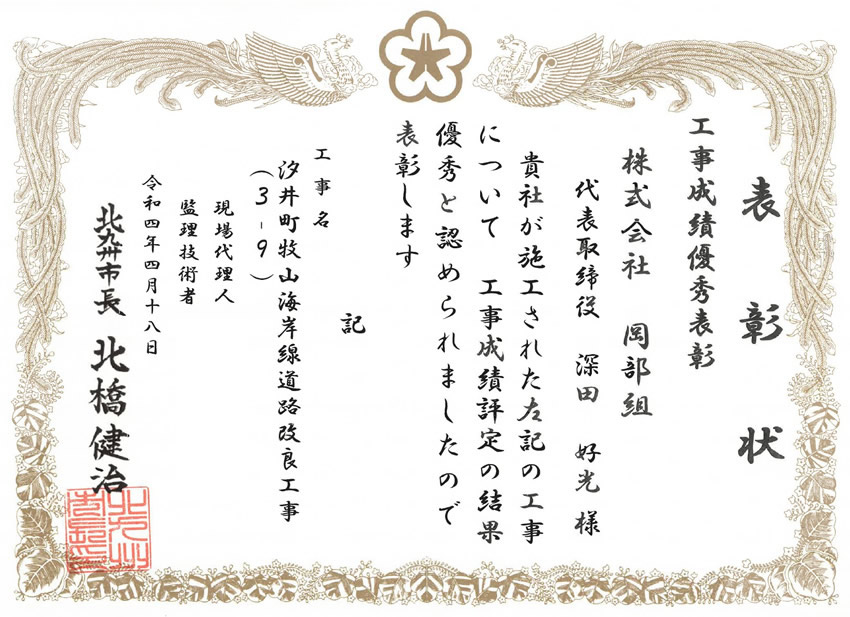 表彰状
工事成績優秀表彰
株式会社 岡部組
代表取締役 深田 好光 様
貴社が施工された左記の工事
について 工事成績評定の結果
優秀と認められましたので
表彰します
記
工事名
汐井町牧山海岸線道路改良工事
(3-9)
現場代理人
監理技術者
令和四年四月十八日
北九州市長 北橋健治
北九州市長印